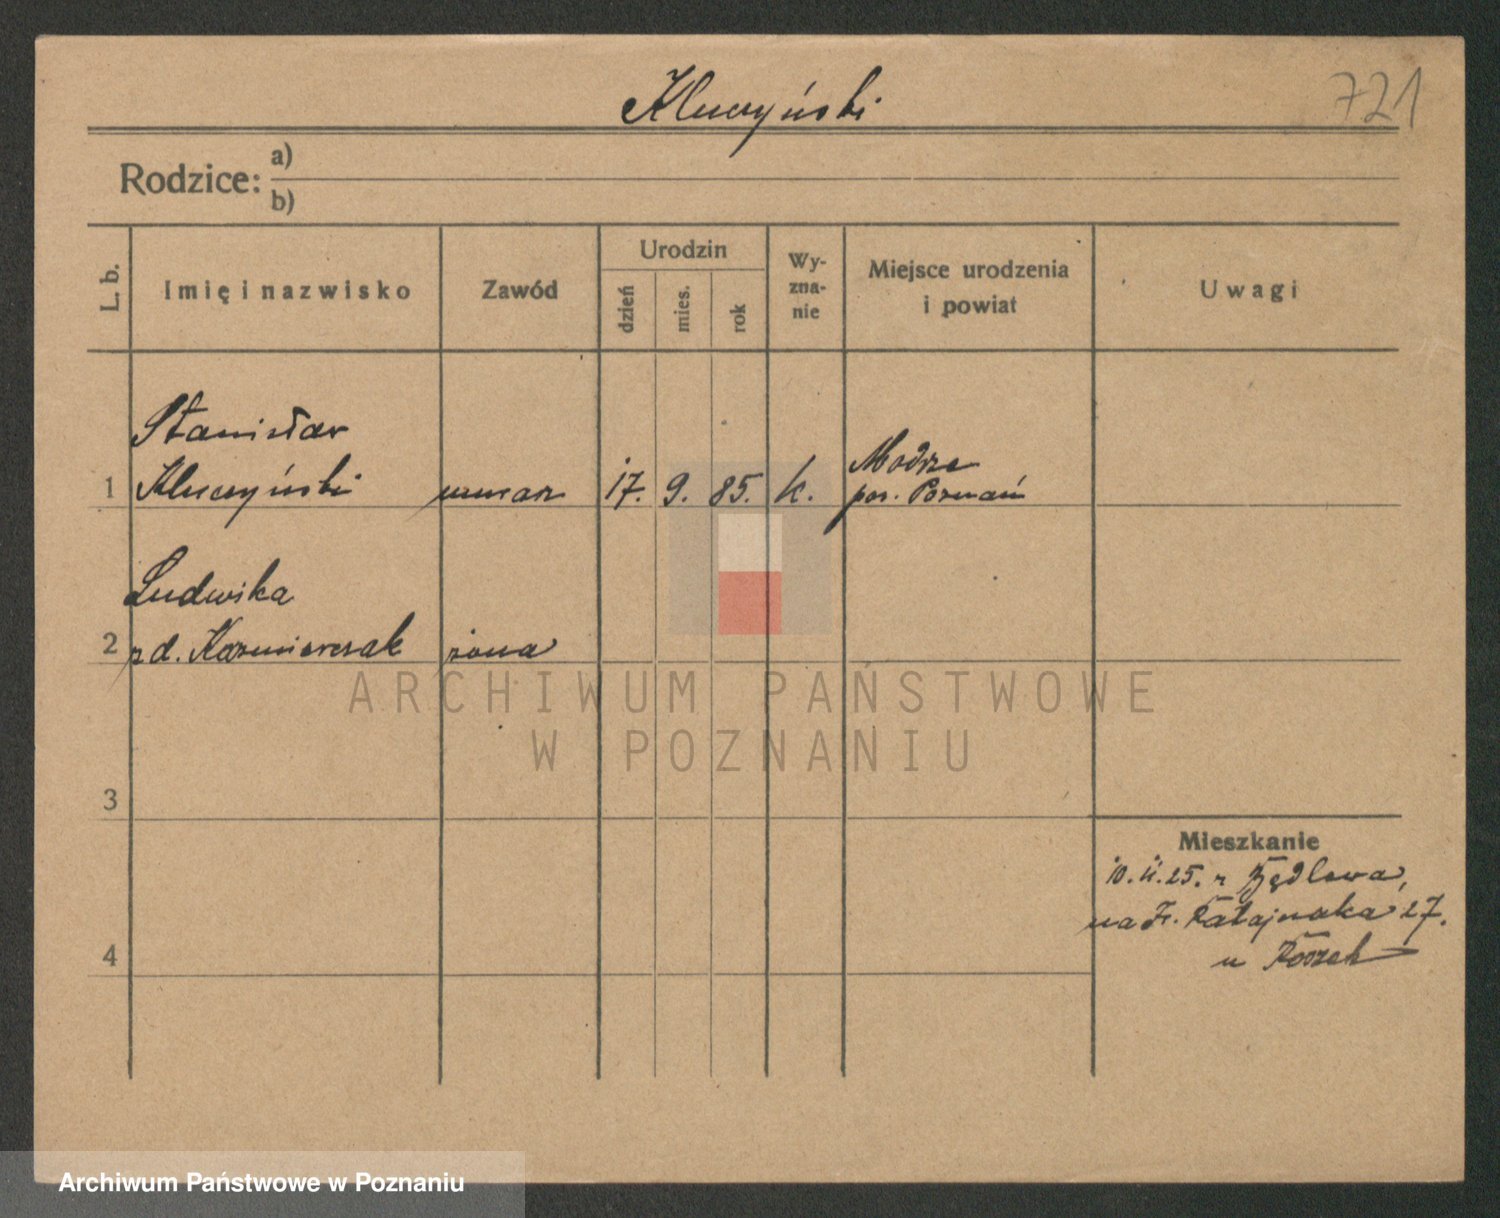 Kluczyński
721
Rodzice: a)
b)
L. b.
Imię i nazwisko
Zawód
Urodzin
dzień
mies.
rok
Wy-
zna-
nie
Miejsce urodzenia
i powiat
Uwagi
Stanisław
1 Kluczyński murarz 17. 9. 85. k. Modrze
pow. Poznań
Ludwika
2 zd. Kazmierczak żona
3
4
Mieszkanie
10. 25. z Będlewa,
na Fr. Ratajczaka 27.
u
ARCHIWUM PAŃSTWOWE
W POZNANIU
Archiwum Państwowe w Poznaniu